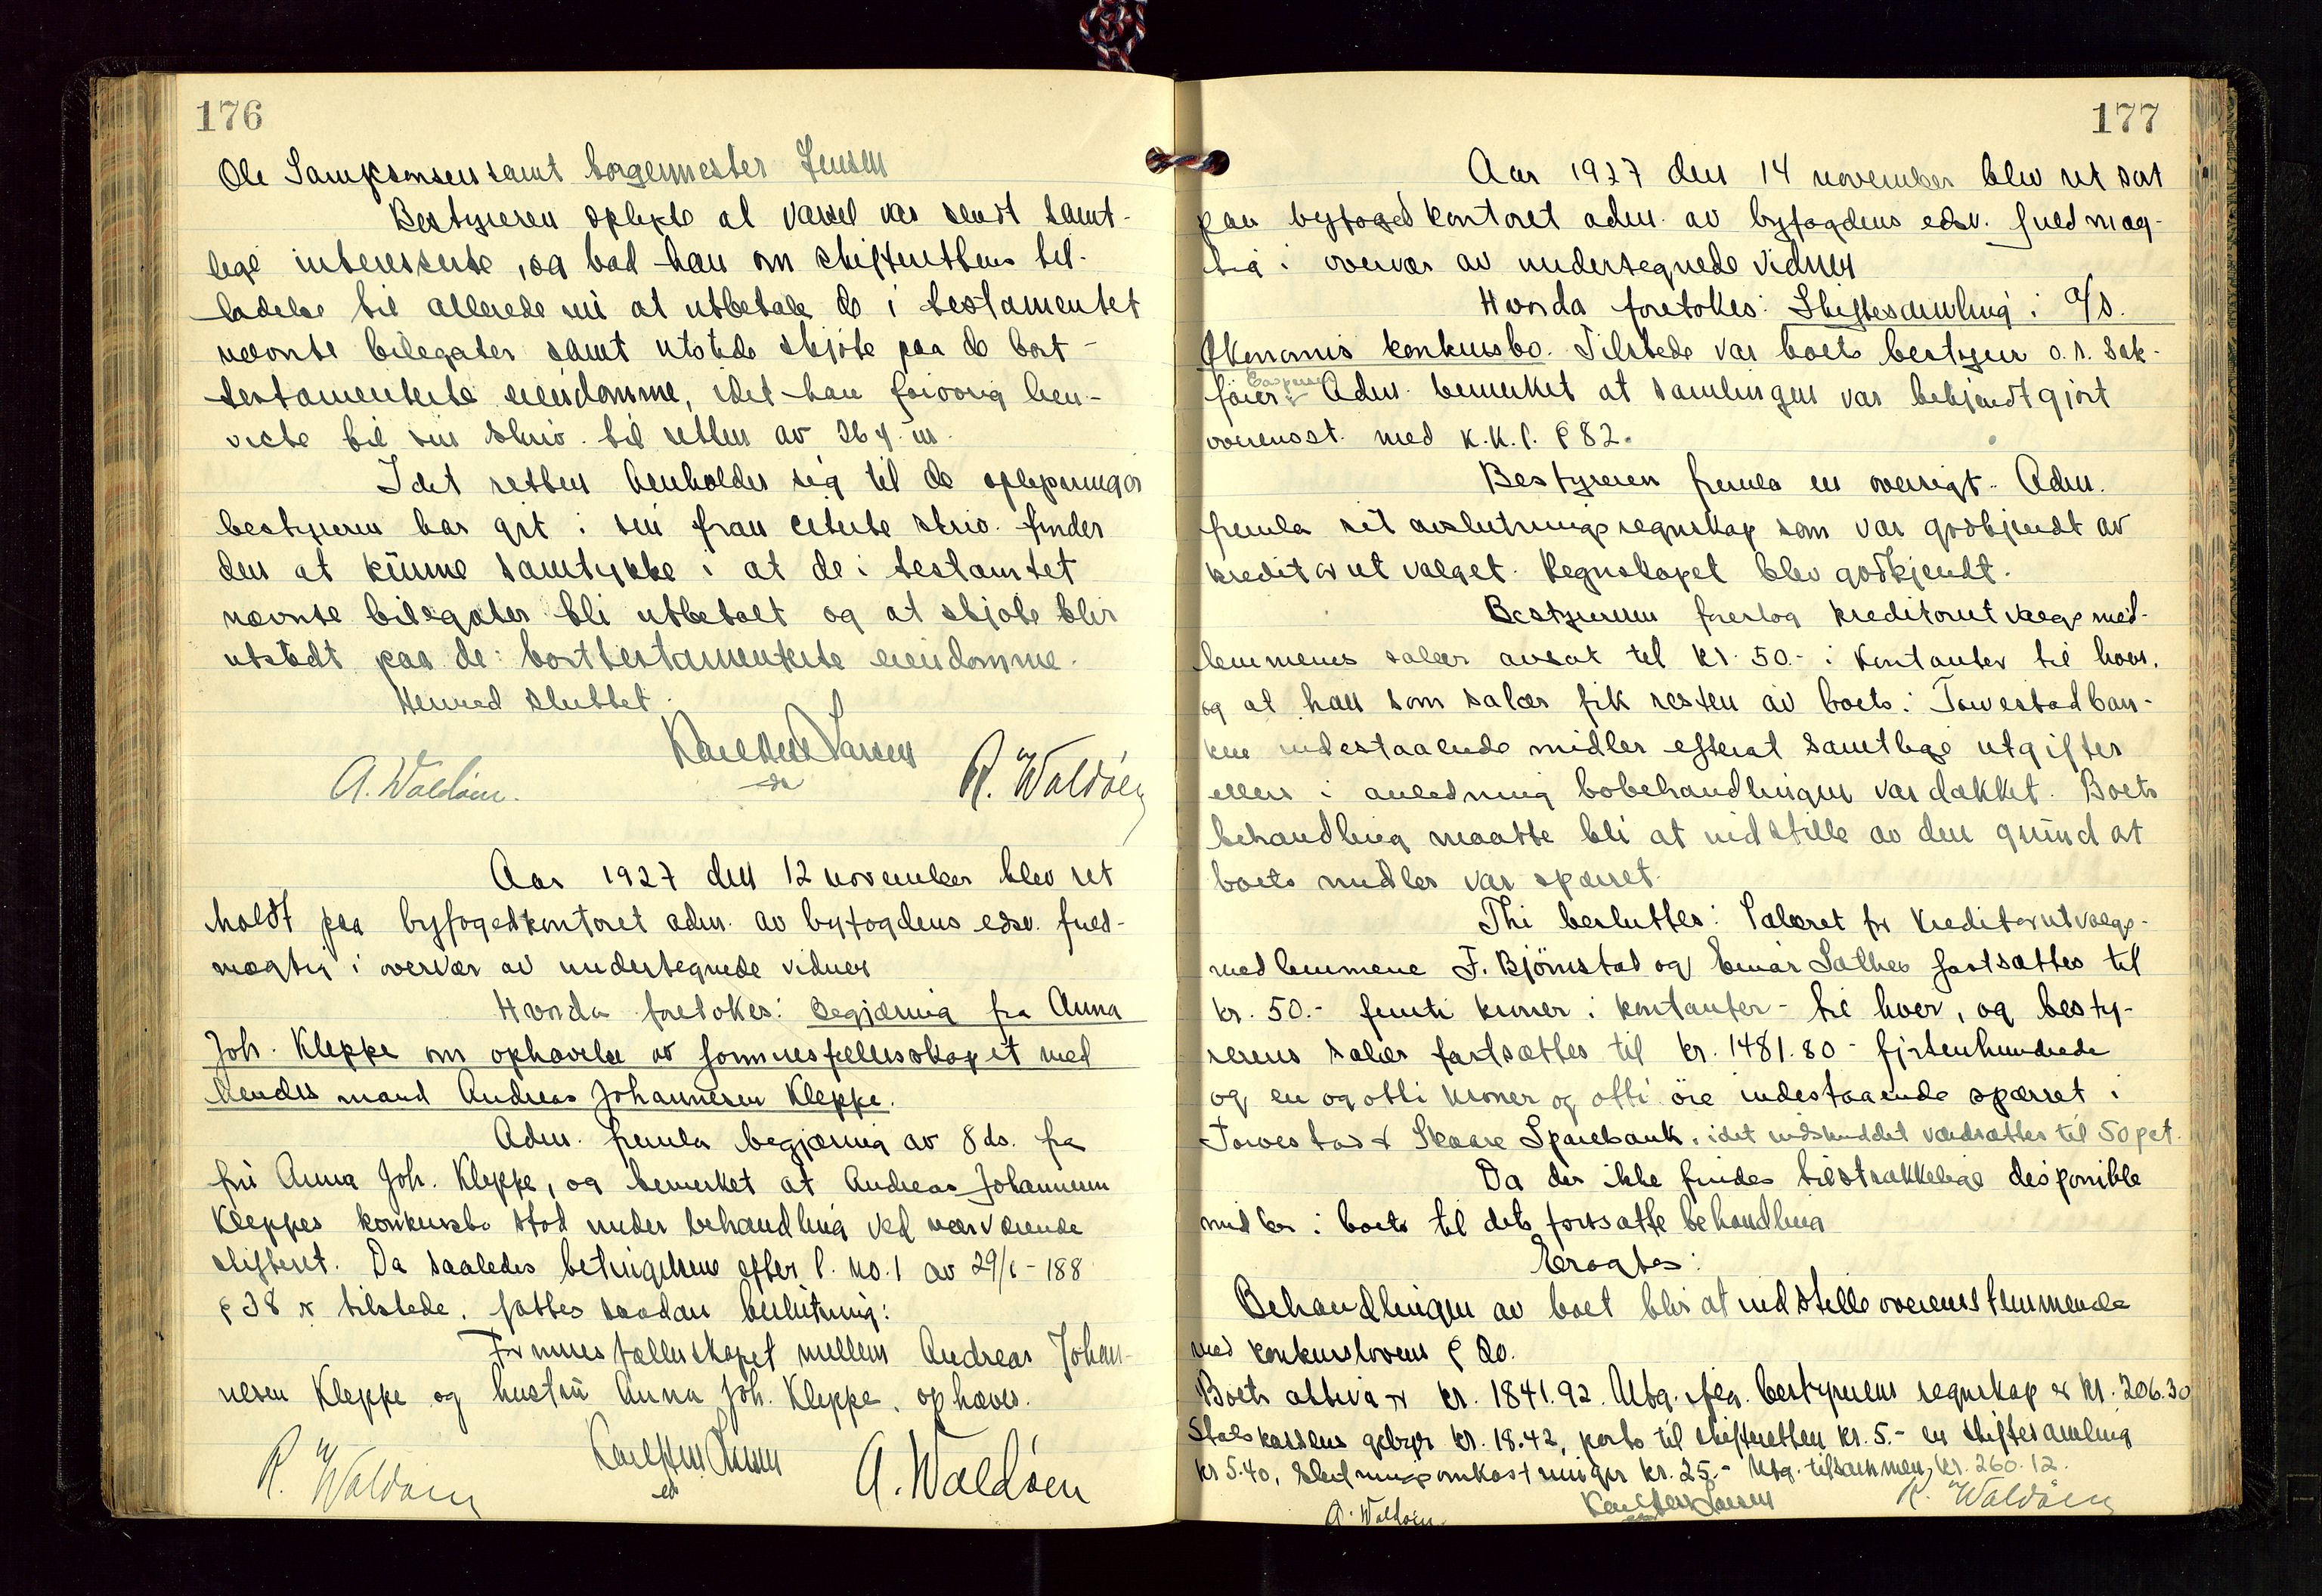 176
Ole Samsonsen samt borgermester Jensen
Bestyreren oplyste at varsel var sendt samt-
lige interesserte, og bad han om skifterettens til-
ladelse til allerede nu at utbetale de i testamentet
nævnte bilegater samt utstede skjøte paa de bort-
testamenterte eiendomme, idet han forøvrig hen-
viste til sin skriv. til retten av 26 f.m.
Idet retten henholder sig til de oplysninger
bestyreren har git i sin fran citerte skriv. finder
den at kunne samtykke i at de i testamtet
nævnte bilegater bli utbetalt og at skjøte blir
utstedt paa de: borttestamenterte eiendomme.
Hermed sluttet.
A. Waldøen. Larsen R. Waldøen
ed
Aar 1927 den 12 november blev ret
holdt paa byfogedkontoret adm. av byfogdens edsv. fuld-
mægtig i overvær av undertegnede vidner
Hvorda foretokes: Begjæring fra Anna
Joh. Kleppe om ophævelse av formuesfællesskapet med
hendes mand Andreas Johannesen Kleppe.
Adm. fremla begjæring av 8 ds. fra
fru Anna Joh. Kleppe, og bemerket at Andreas Johannesen
Kleppes konkursbo stod under behandling ved nærværende
skifteret. Da saaledes betingelsene efter l. no. 1 av 29/6-188
§ 38 er tilstede, fattes saadan beslutning:
Formuesfællesskapet mellem Andreas Johan-
nesen Kleppe og hustru Anna Joh. Kleppe, ophæves.
R. Waldøen Larsen A. Waldøen
ed
177
Aar 1927 den 14 november blev ret sat
paa byfogedkontoret adm. av byfogdens edsv. fuldmæg-
tig i overvær av undertegnede vidner
Hvorda foretokes: Skiftesamling i A/S.
Økonomis konkursbo. Tilstede var boets bestyrer o.r. sak-
fører Adm. bemerket at samlingen var bekjendtgjort
overensst. med K.K.l. § 82.
Bestyreren fremla en oversigt. Adm.
fremla sit avslutningsregnskap som var godkjendt av
kreditorutvalget. Regnskapet blev godkjendt.
Bestyreren foreslog kreditorutvalgsmed-
lemmenes salær avsat til kr. 50.- i kontanter til hver,
og at han som salær fik resten av boets i Torvestadban-
ken indestaaende midler efterat samtlige utgifter
ellers i anledning bobehandlingen var dækket. Boets
behandling maatte bli at indstille av den grund at
boets midler var sperret.
Thi besluttes: Salæret for kreditorutvalgs-
medlemmene F. Bjørnstad og Einar Sæthes fastsættes til
kr. 50.- femti kroner i kontanter - til hver, og besty-
rerens salær fastsættes til kr. 1481.80 - fjortenhundrede
og en og otti kroner og otti øre indestaaende sperret i
Torvestad & Skaare Sparebank, idet indskuddet værdsættes til 50 pct.
Da der ikke findes tilstrækkelige disponible
midler i boet til dets fortsatte behandling
Eragtes:
Behandlingen av boet blir at indstille overensstemmende
med konkurslovens §
Boets aktiva er kr. 1841.92. Utg. iflg. bestyrerens regnskap er kr. 206.30
Statskassens gebyr kr. 18.42, porto til skifteretten kr. 5.- en skiftesamling
kr 5.40, slutningsomkostninger kr. 25.- Utg. tilsammen kr. 260.12.
A. Waldøen. Larsen R. Waldøen